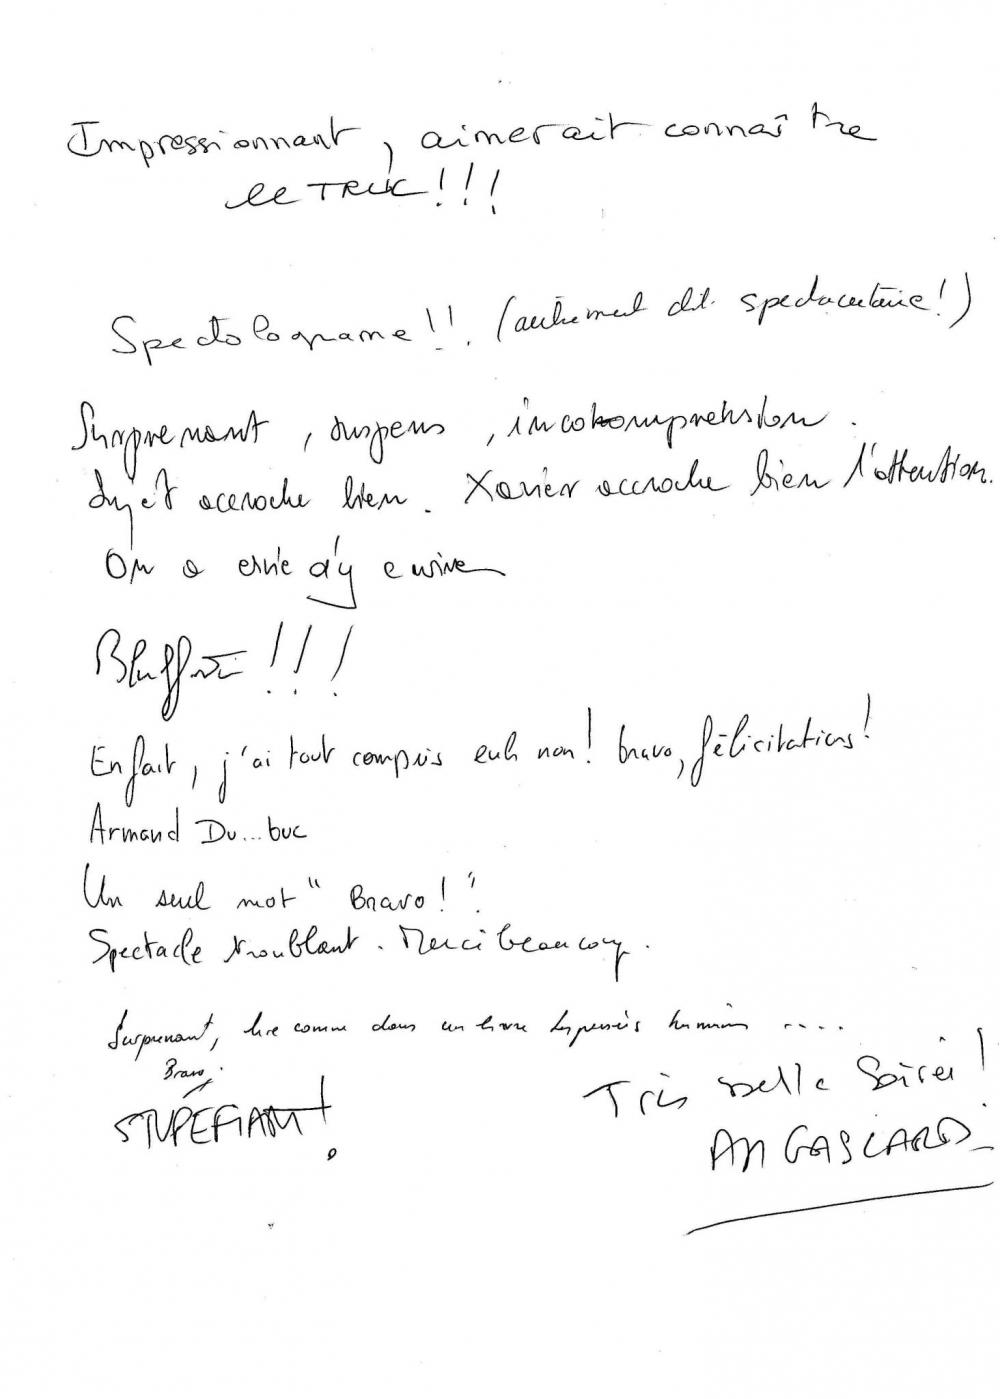 Impressionnant, aimerait connaître
le TRUC!!!
Spectolograme!!. (autrement dit spectaculaire!)
Surprenant, suspens, incokompréhension.
Sujet accroche bien. Xavier accroche bien l'attention.
On a envie d'y
Bluffant!!!
En fait, j'ai tout compris euh non! bravo, félicitations!
Armand Du...buc
Un seul mot "Bravo!".
Spectacle troublant. Merci beaucoup.
Surprenant, lire comme dans un livre les pensées humaines ....
Bravo.
STUPEFIANT!
Très belle soirée!
AM GASCARD